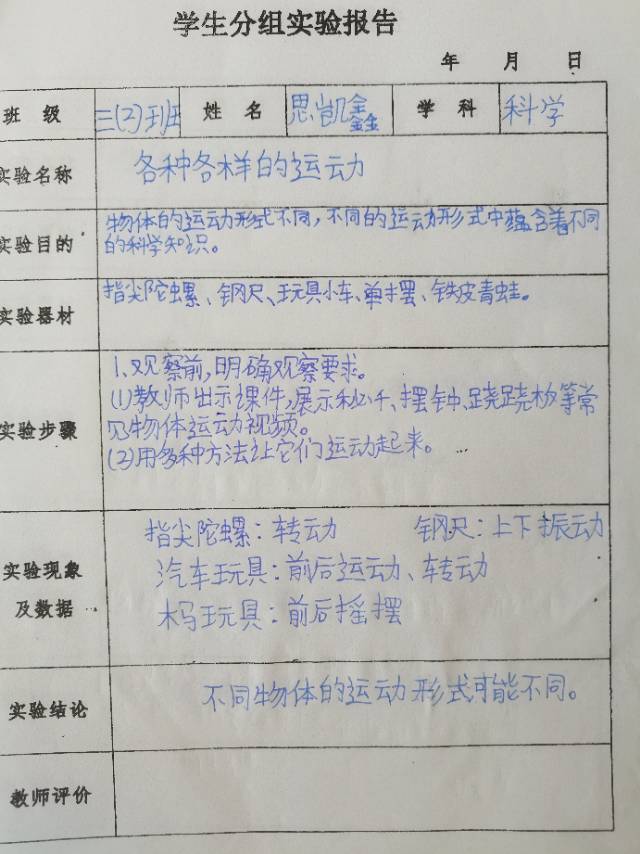 学生分组实验报告
年 月 日
班 级 三(2)班 姓 名 思凯鑫 学 科 科学
实验名称 各种各样的运动力
实验目的 物体的运动形式不同,不同的运动形式中蕴含着不同
的科学知识。
实验器材 指尖陀螺、钢尺、玩具小车、单摆、铁皮青蛙。
实验步骤 1、观察前,明确观察要求。
(1)教师出示课件,展示秋千、摆钟、跷跷板等常
见物体运动视频。
(2)用多种方法让它们运动起来。
实验现象 指尖陀螺:转动 钢尺:上下振动
汽车玩具:前后运动、转动
及数据 木马玩具:前后摇摆
实验结论 不同物体的运动形式可能不同。
教师评价